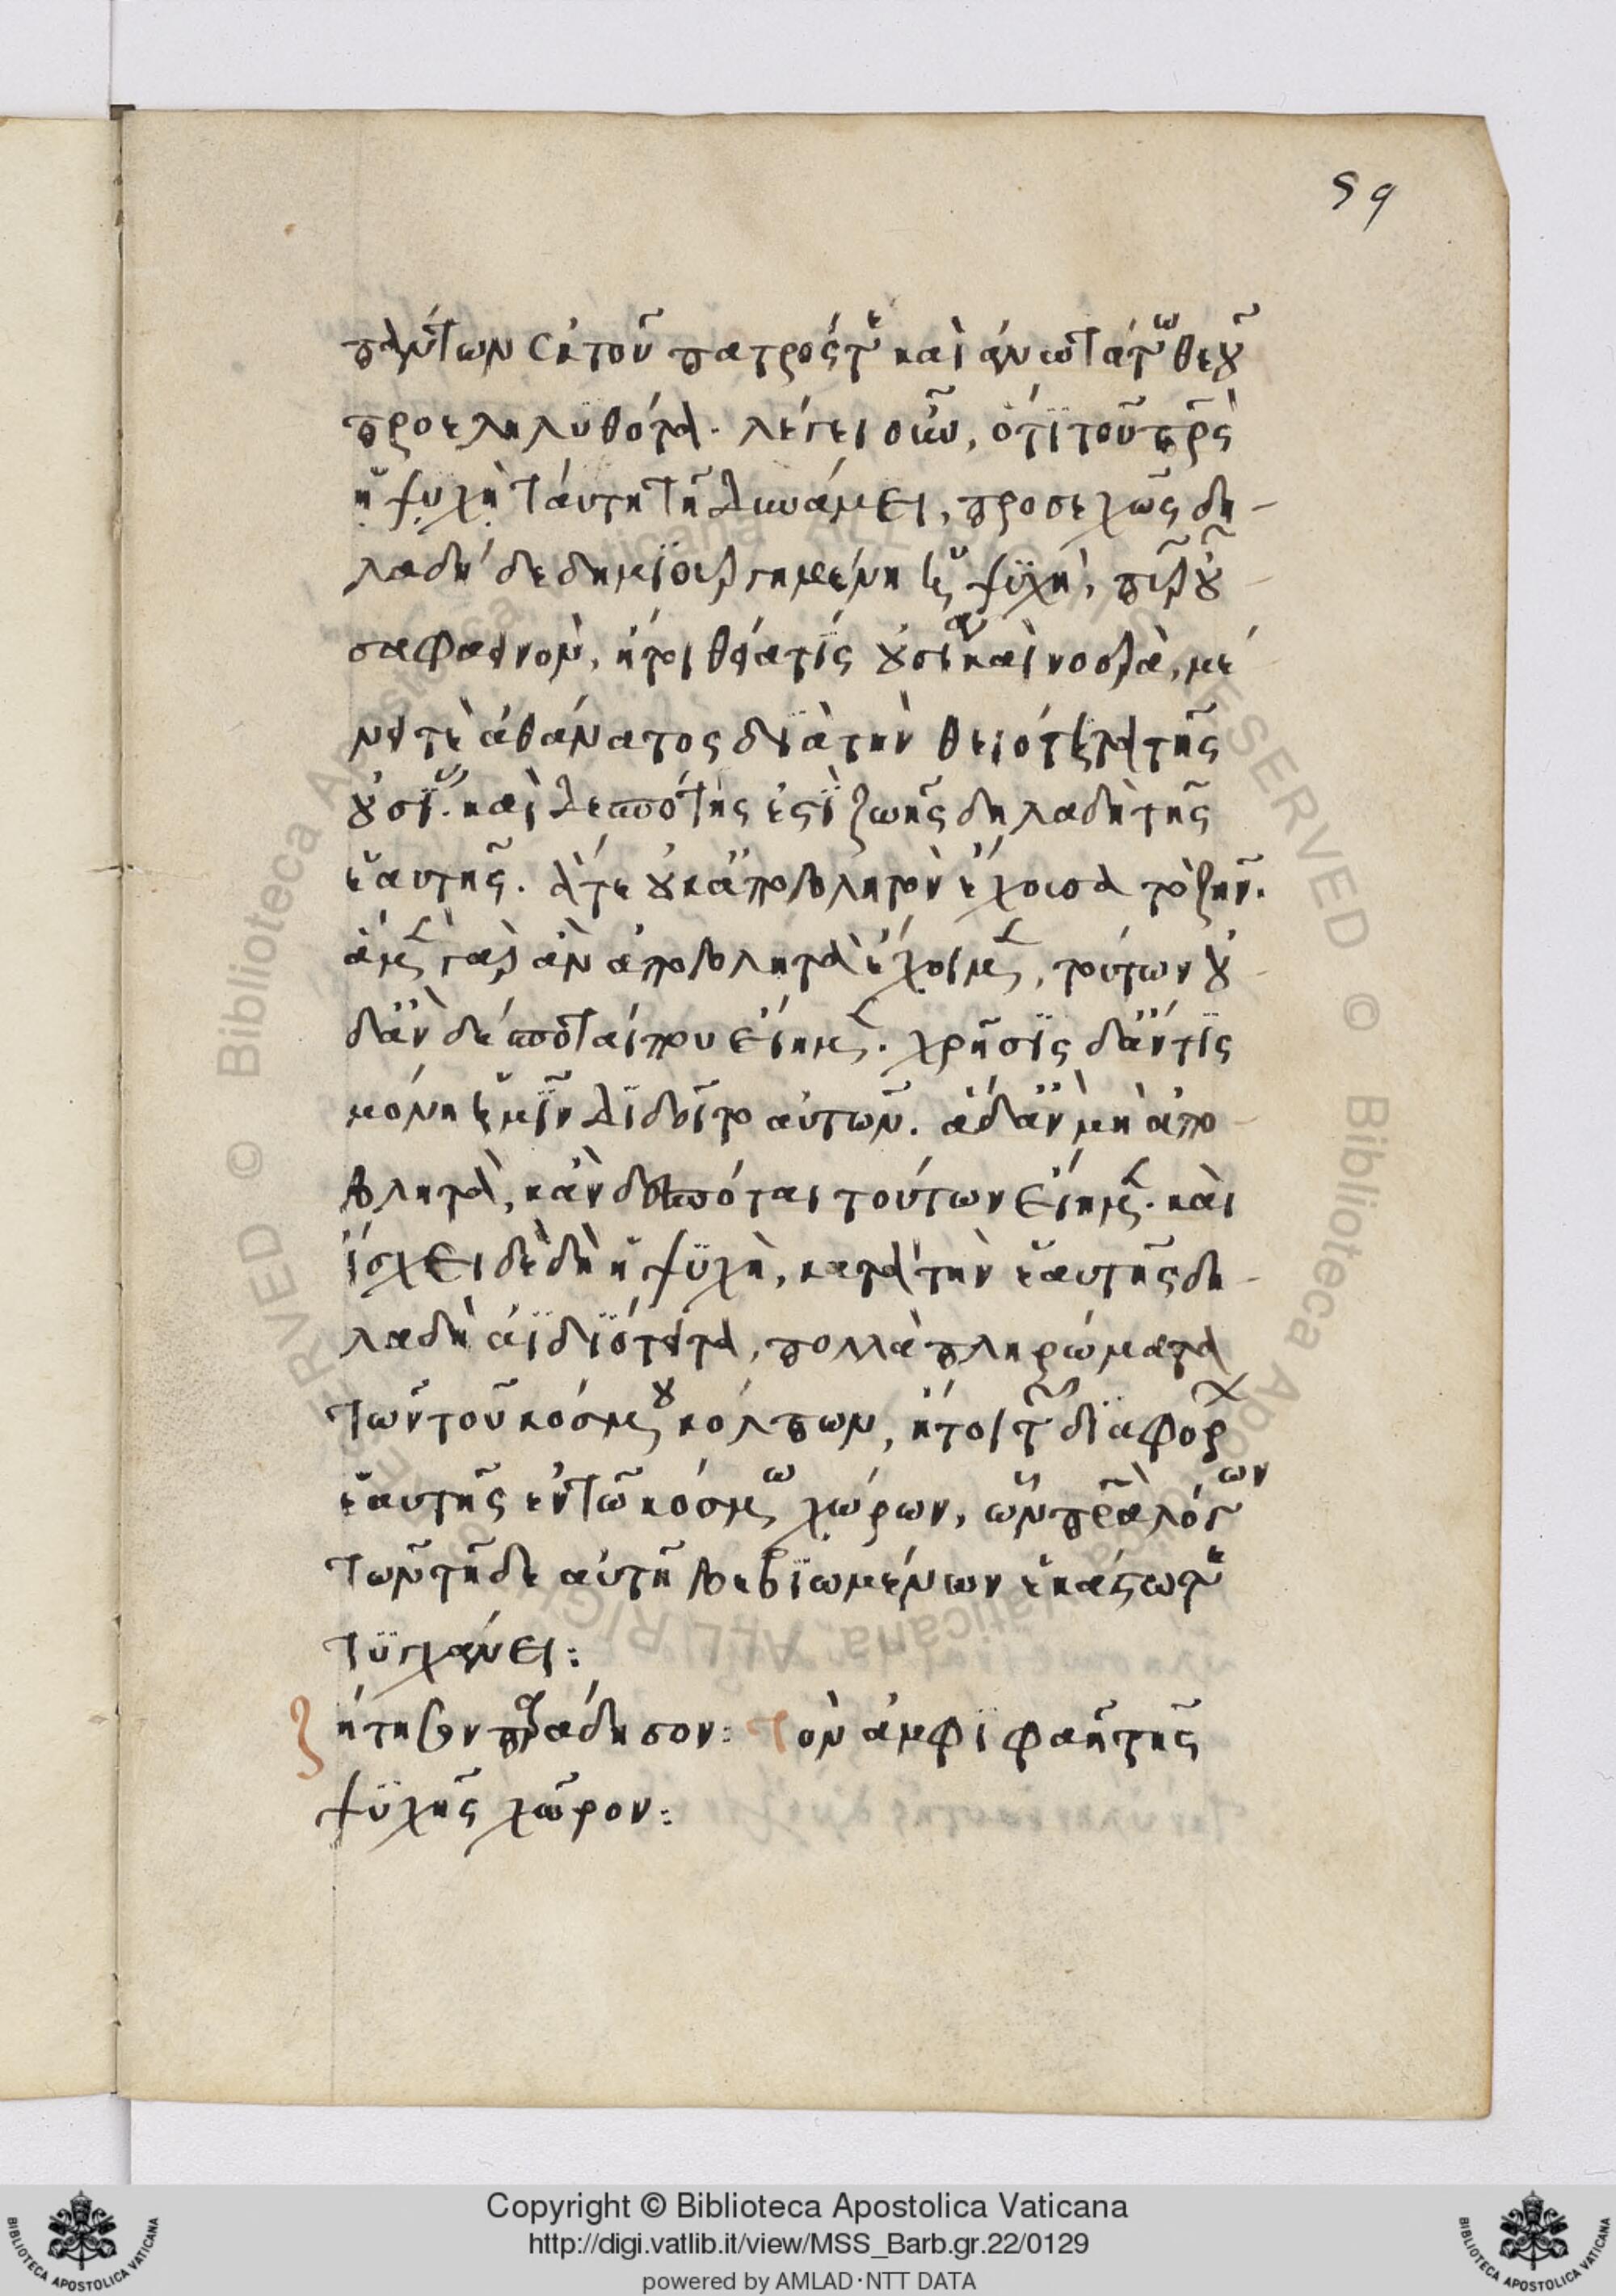 59
πάντων ἐκ τοῦ πατρός τε καὶ ἀνωτάτω θεοῦ
προεληλυθότα. λέγει οὖν, ὅτι τοῦ πρς
ἡ ψυχὴ ταύτῃ τῇ δυνάμει, προσεχῶς δη-
λαδὴ δεδημιουργημένη ἡ ψυχὴ, πῦρ οὖ-
σα φαεινὸν, ἤτοι θεία τίς οὐσία καὶ νοερὰ, μέ
νει τὲ ἀθάνατος διὰ τὴν θειότητα τῆς
οὐσίας. καὶ δεσπότης ἐστὶ ζωῆς δηλαδὴ τῆς
ἑαυτῆς. ἅτε οὐκ ἀπόβλητον ἔχουσα τὸ ζῆν.
ἃ μὲν γὰρ ἂν ἀπόβλητα ἔχοιμεν, τούτων οὐ-
δ' ἂν δεσπόται που εἴημεν. χρῆσις δ' ἄν τις
μόνη ἡμῖν δίδοιτο αὐτῶν. ἃ δ' ἂν μὴ ἀπό-
βλητα, κἂν δεσπόται τούτων εἴημεν. καὶ
ἴσχει δὲ δὴ ἡ ψυχὴ, κατὰ τὴν ἑαυτῆς δη-
λαδὴ ἀϊδιότητα, πολλὰ πληρώματα
τῶν τοῦ κόσμου κόλπων, ἤτοι τῶν διαφόρ
ἑαυτῆς ἐν τῷ κόσμῳ χώρων, ὧν πρς λόγων
τῶν τῇδε αὐτῇ βεβιωμένων ἑκάστωτε
τυγχάνει:
ζήτησον παράδησον: Τὸν ἀμφιφαῆ τῆς
ψυχῆς χῶρον:
Copyright © Biblioteca Apostolica Vaticana
http://digi.vatlib.it/view/MSS_Barb.gr.22/0129
powered by AMLAD·NTT DATA